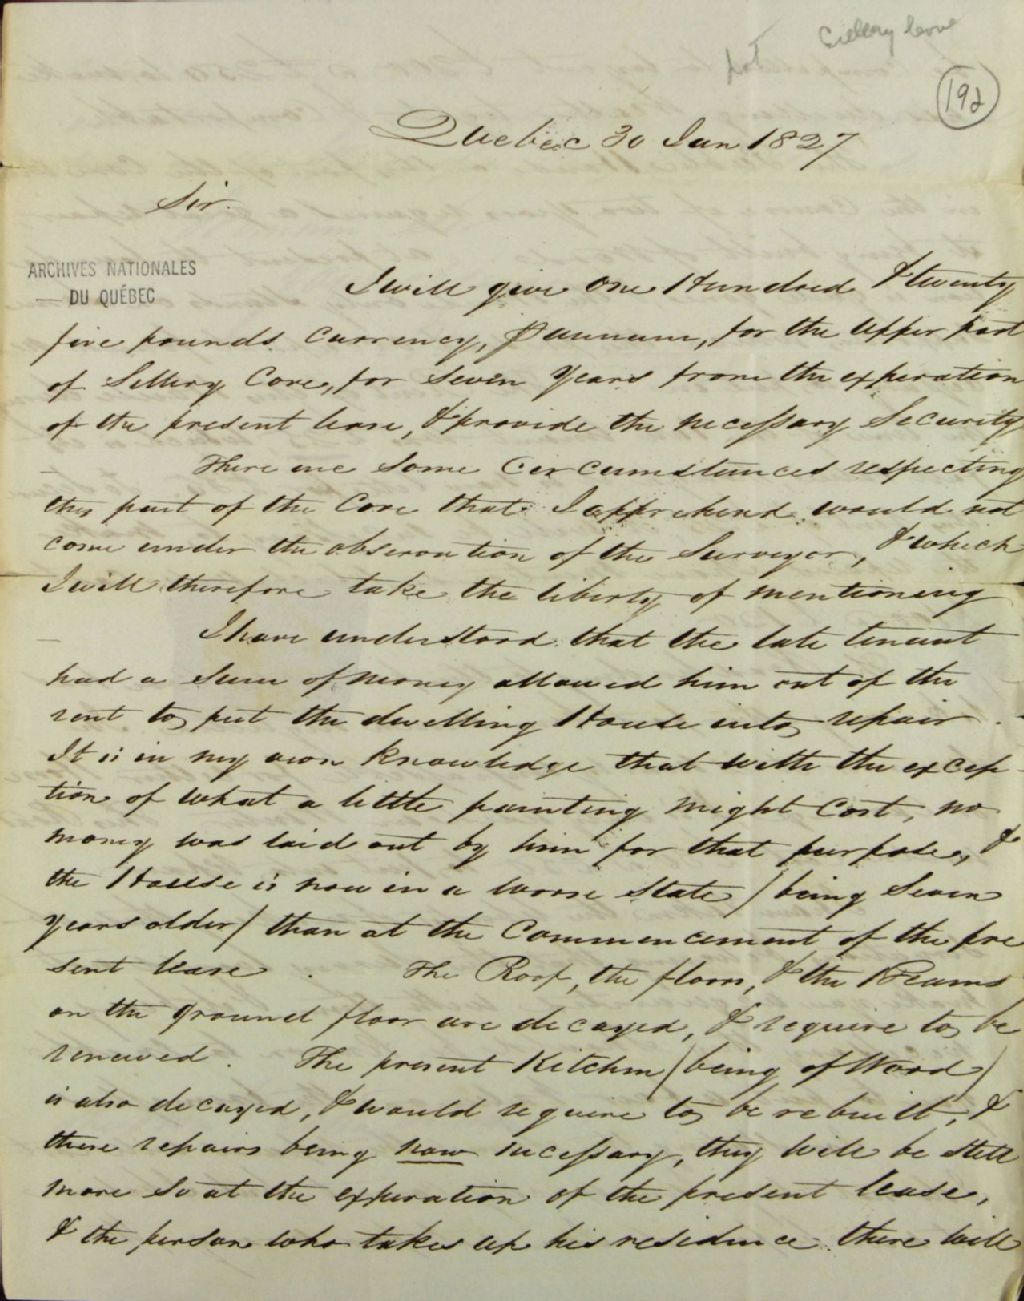 Sillery Cove
lot
192
Quebec 30 Jan 1827
Sir.
ARCHIVES NATIONALES
DU QUÉBEC
I will give One Hundred & twenty
five pounds Currency, p annum, for the Upper part
of Sillery Cove, for Seven Years from the expiration
of the present lease, & provide the necessary Security
There are some Circumstances respecting
this part of the Cove that I apprehend would not
come under the observation of the Surveyor, & which
I will therefore take the liberty of mentioning
I have understood that the late tenant
had a Sum of money allowed him out of the
rent to put the dwelling House into repair
It is in my own Knowledge that with the excep-
tion of what a little painting might Cost, no
money was laid out by him for that purpose, &
the House is now in a worse State / being Seven
Years older / than at the Commencement of the pre
sent lease. The Roof, the floors, & the Beams
on the ground floor are decayed, & require to be
renewed. The present Kitchen / being of Wood /
is also decayed, & would require to be rebuilt, &
these repairs being now necessary, they will be still
more so at the expiration of the present lease,
& the person who takes up his residence there will